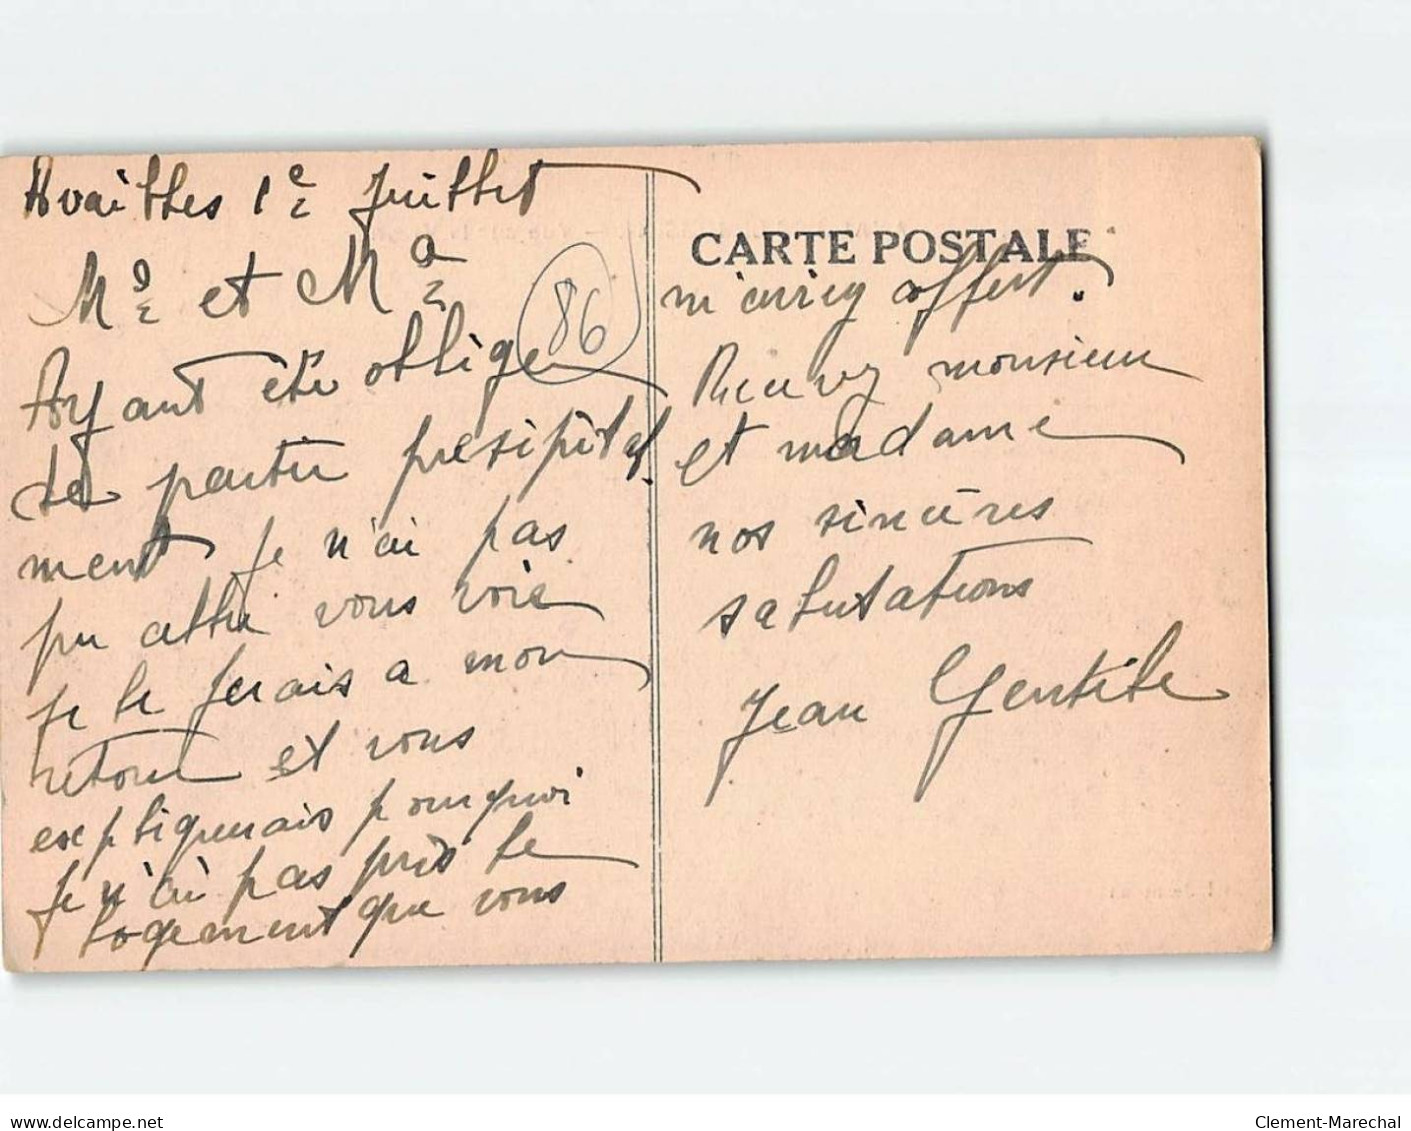 Availles 1e Juillet
Md et Ma
Ayant été obligé
de partir presipitet
ment je n'ai pas
pu aller vous voir
je le ferais a mon
retour et vous
expliquerais pourquoi
je n'ai pas pris le
logement que vous
86
CARTE POSTALE
m'aviez offert.
Recevez monsieur
et madame
nos sincères
salutations
Jean Gentile
www.delcampe.net
Clement-Marechal